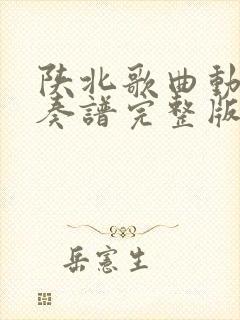 陕北歌曲動
奏譜完整版
岳憲生